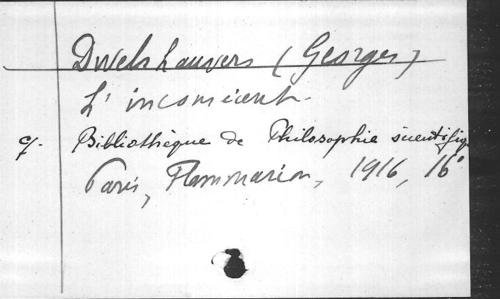 Dwelshauvers (Georges)
L'inconscient.
cf. Bibliothèque de Philosophie scientifiq
Paris, Flammarion, 1916, 16°